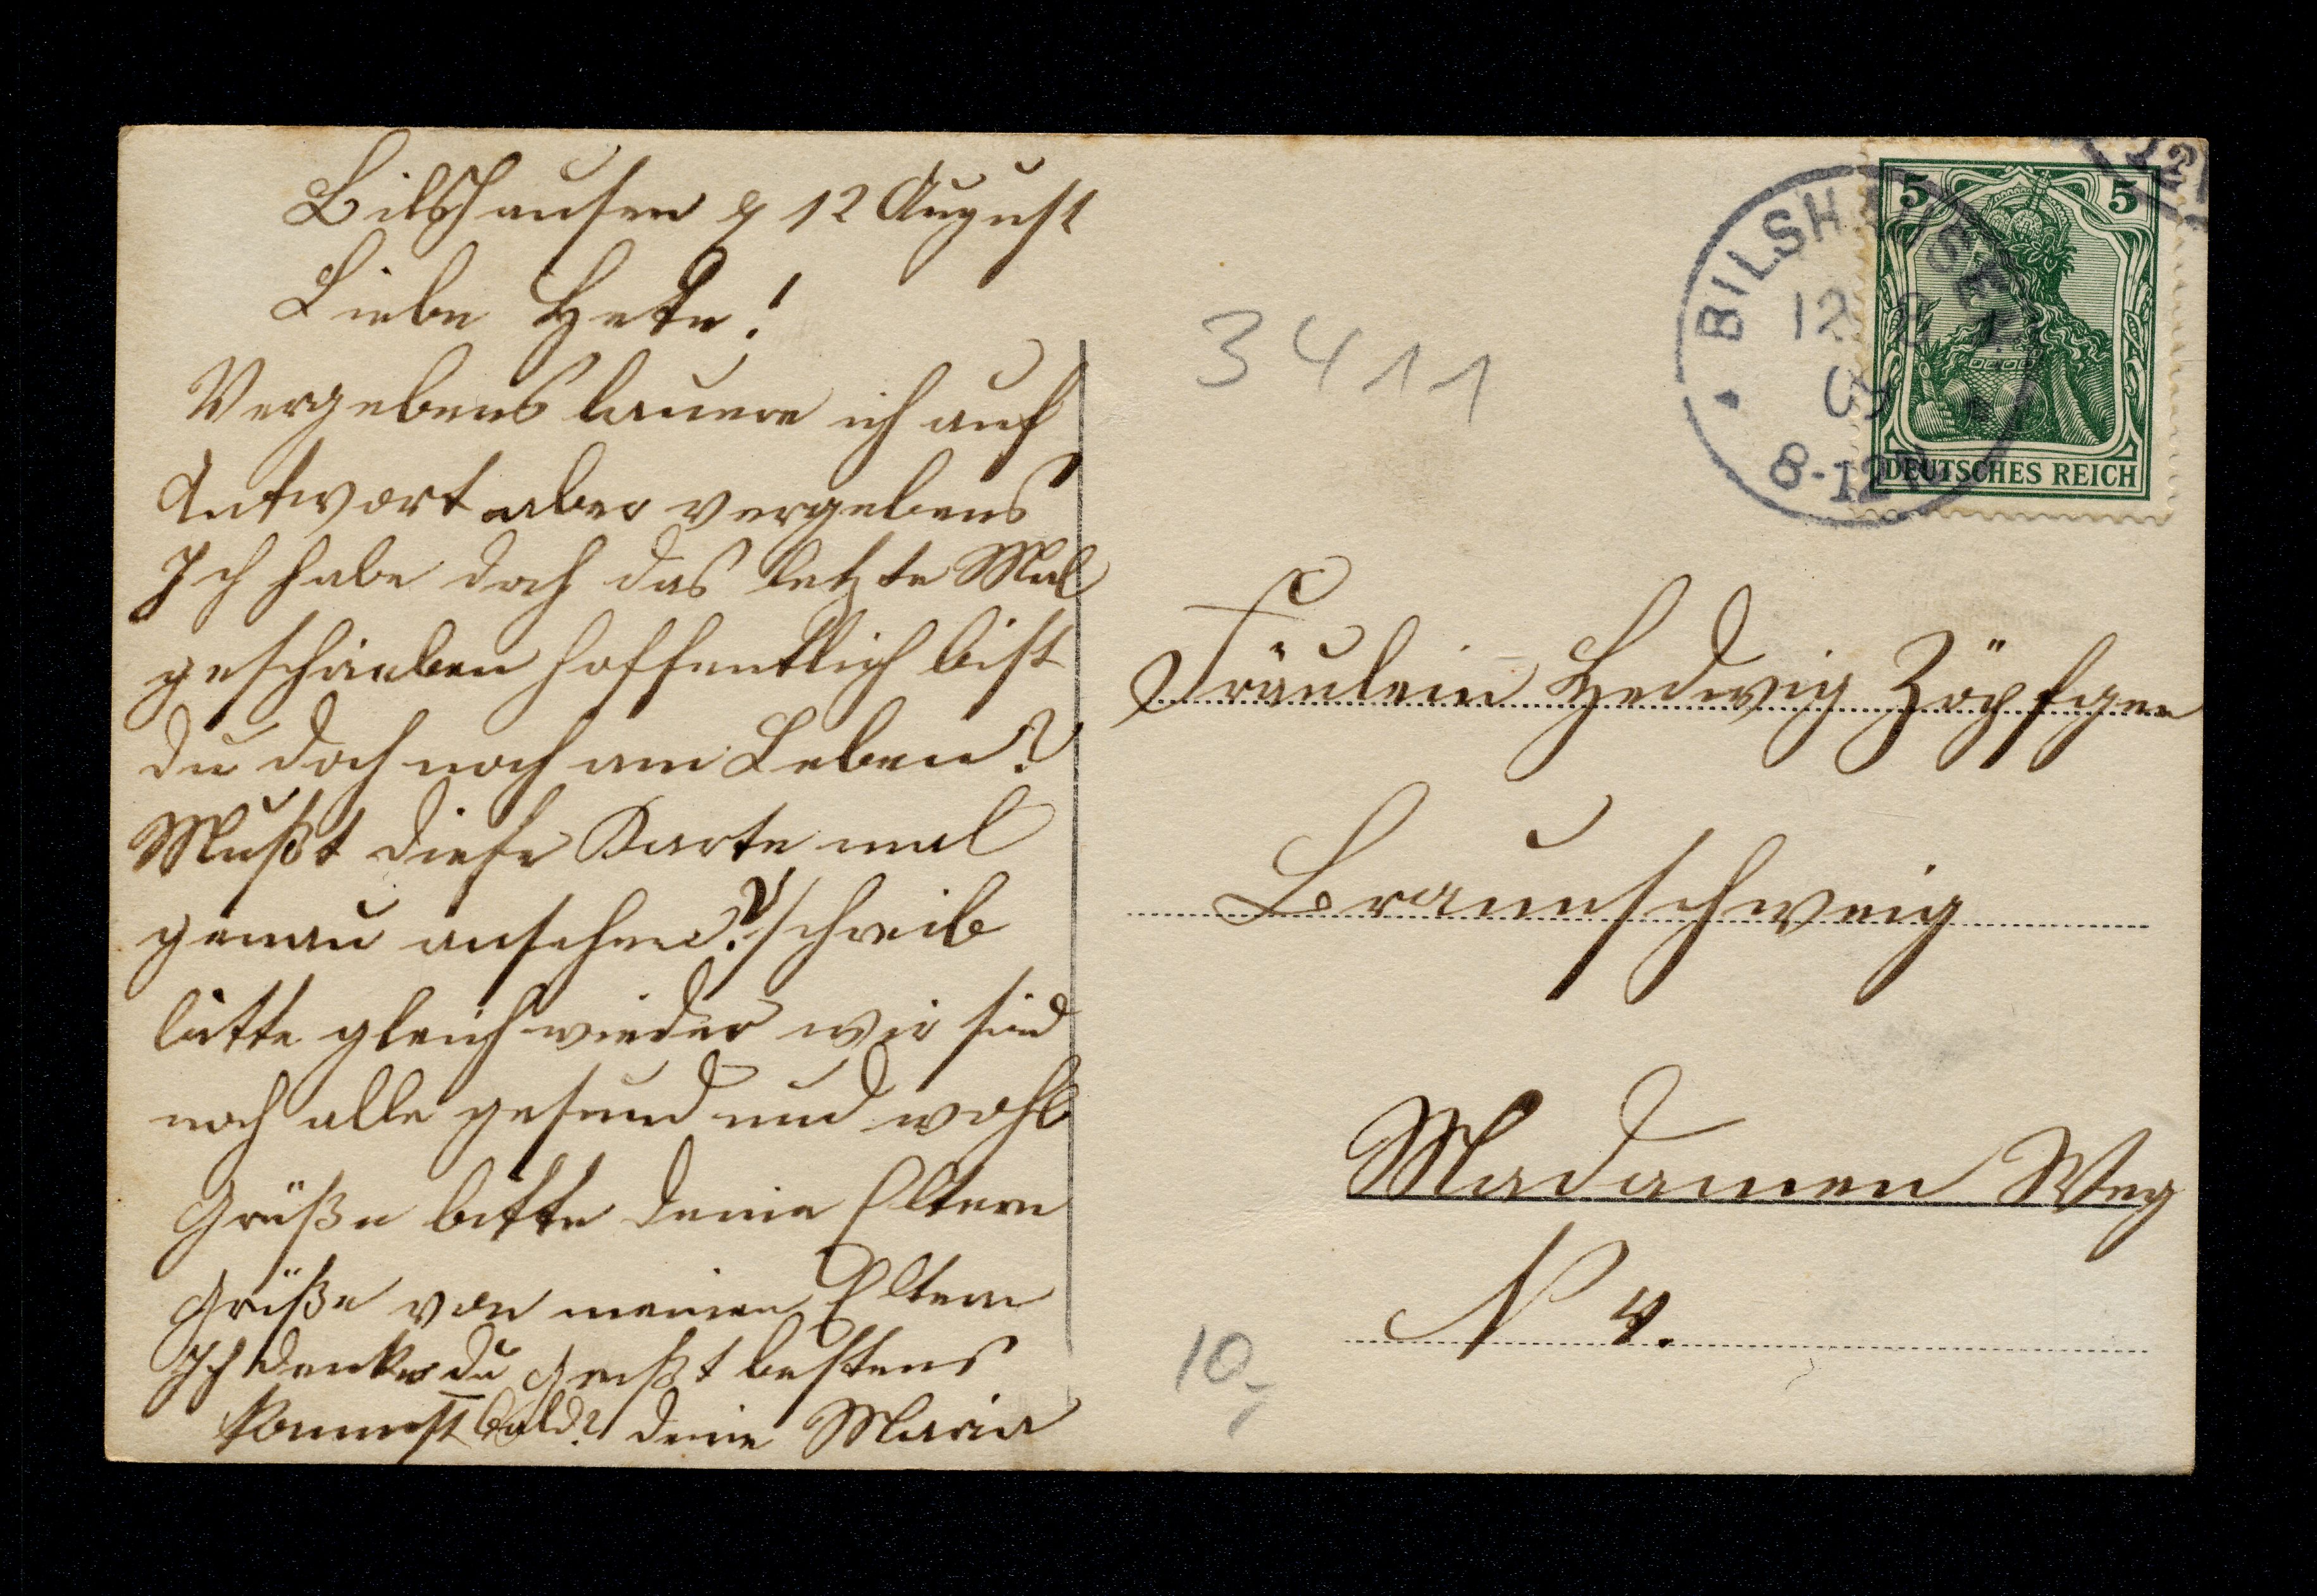 Bilshausen d 12 August
Liebe Hete!
Vergebens lauere ich auf
Antwort aber vergebens
Ich habe doch das letzte Mal
geschrieben hoffentlich bist
du doch noch am Leben?
Mußt diese Karte mal
genau ansehen? schreib
bitte gleich wieder wir sind
noch alle gesund und wohl
Grüße bitte deine Eltern
Grüße von meinen Eltern
Ich denke du
kommst bald?
Grüßt bestens
deine Maria
3411
BILSHAUSEN
12 8
8-12
5 5
DEUTSCHES REICH
Fräulein Hedwig Zöpfgen
Braunschweig
Madamen Weg
N 4.
10,-